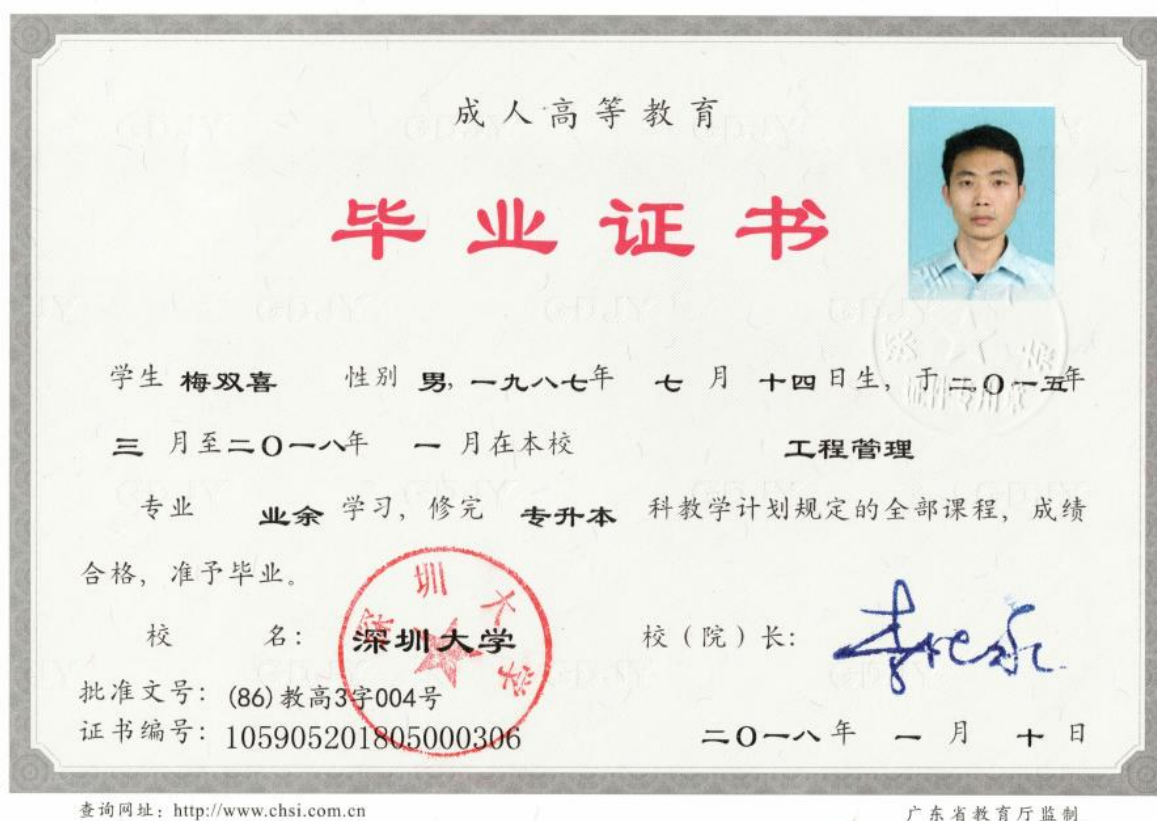 成人高等教育
毕业证书
学生 梅双喜 性别 男, 一九八七年 七 月 十四日生, 于二O一五年
三 月至二O一八年 一 月在本校 工程管理
专业 业余 学习, 修完 专升本 科教学计划规定的全部课程, 成绩
合格, 准予毕业。
校 名: 深圳大学 校(院)长:
深圳大学
批准文号: (86)教高3字004号
证书编号: 105905201805000306 二O一八年 一 月 十 日
查询网址: http://www.chsi.com.cn 广东省教育厅监制